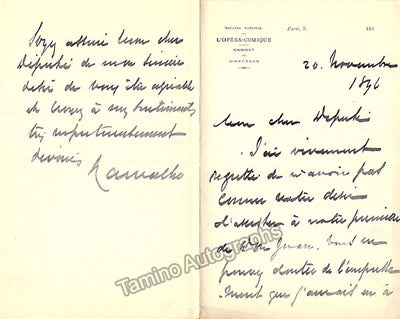 THÉATRE NATIONAL
DE
L'OPÉRA-COMIQUE
CABINET
DU
DIRECTEUR
Paris, le 189
20 Novembre
1896
Mon cher Député
J'ai vivement
regretté de n'avoir pas
connu votre désir
d'assister à notre première
de Don Juan. Vous ne
pouvez douter de l'empresse-
ment que j'aurais eu à
Soyez assuré mon cher
Député de mon sincère
désir de vous être agréable
et croyez à mes sentiments
très respectueusement
dévoués
Carvalho
Tamino Autographs